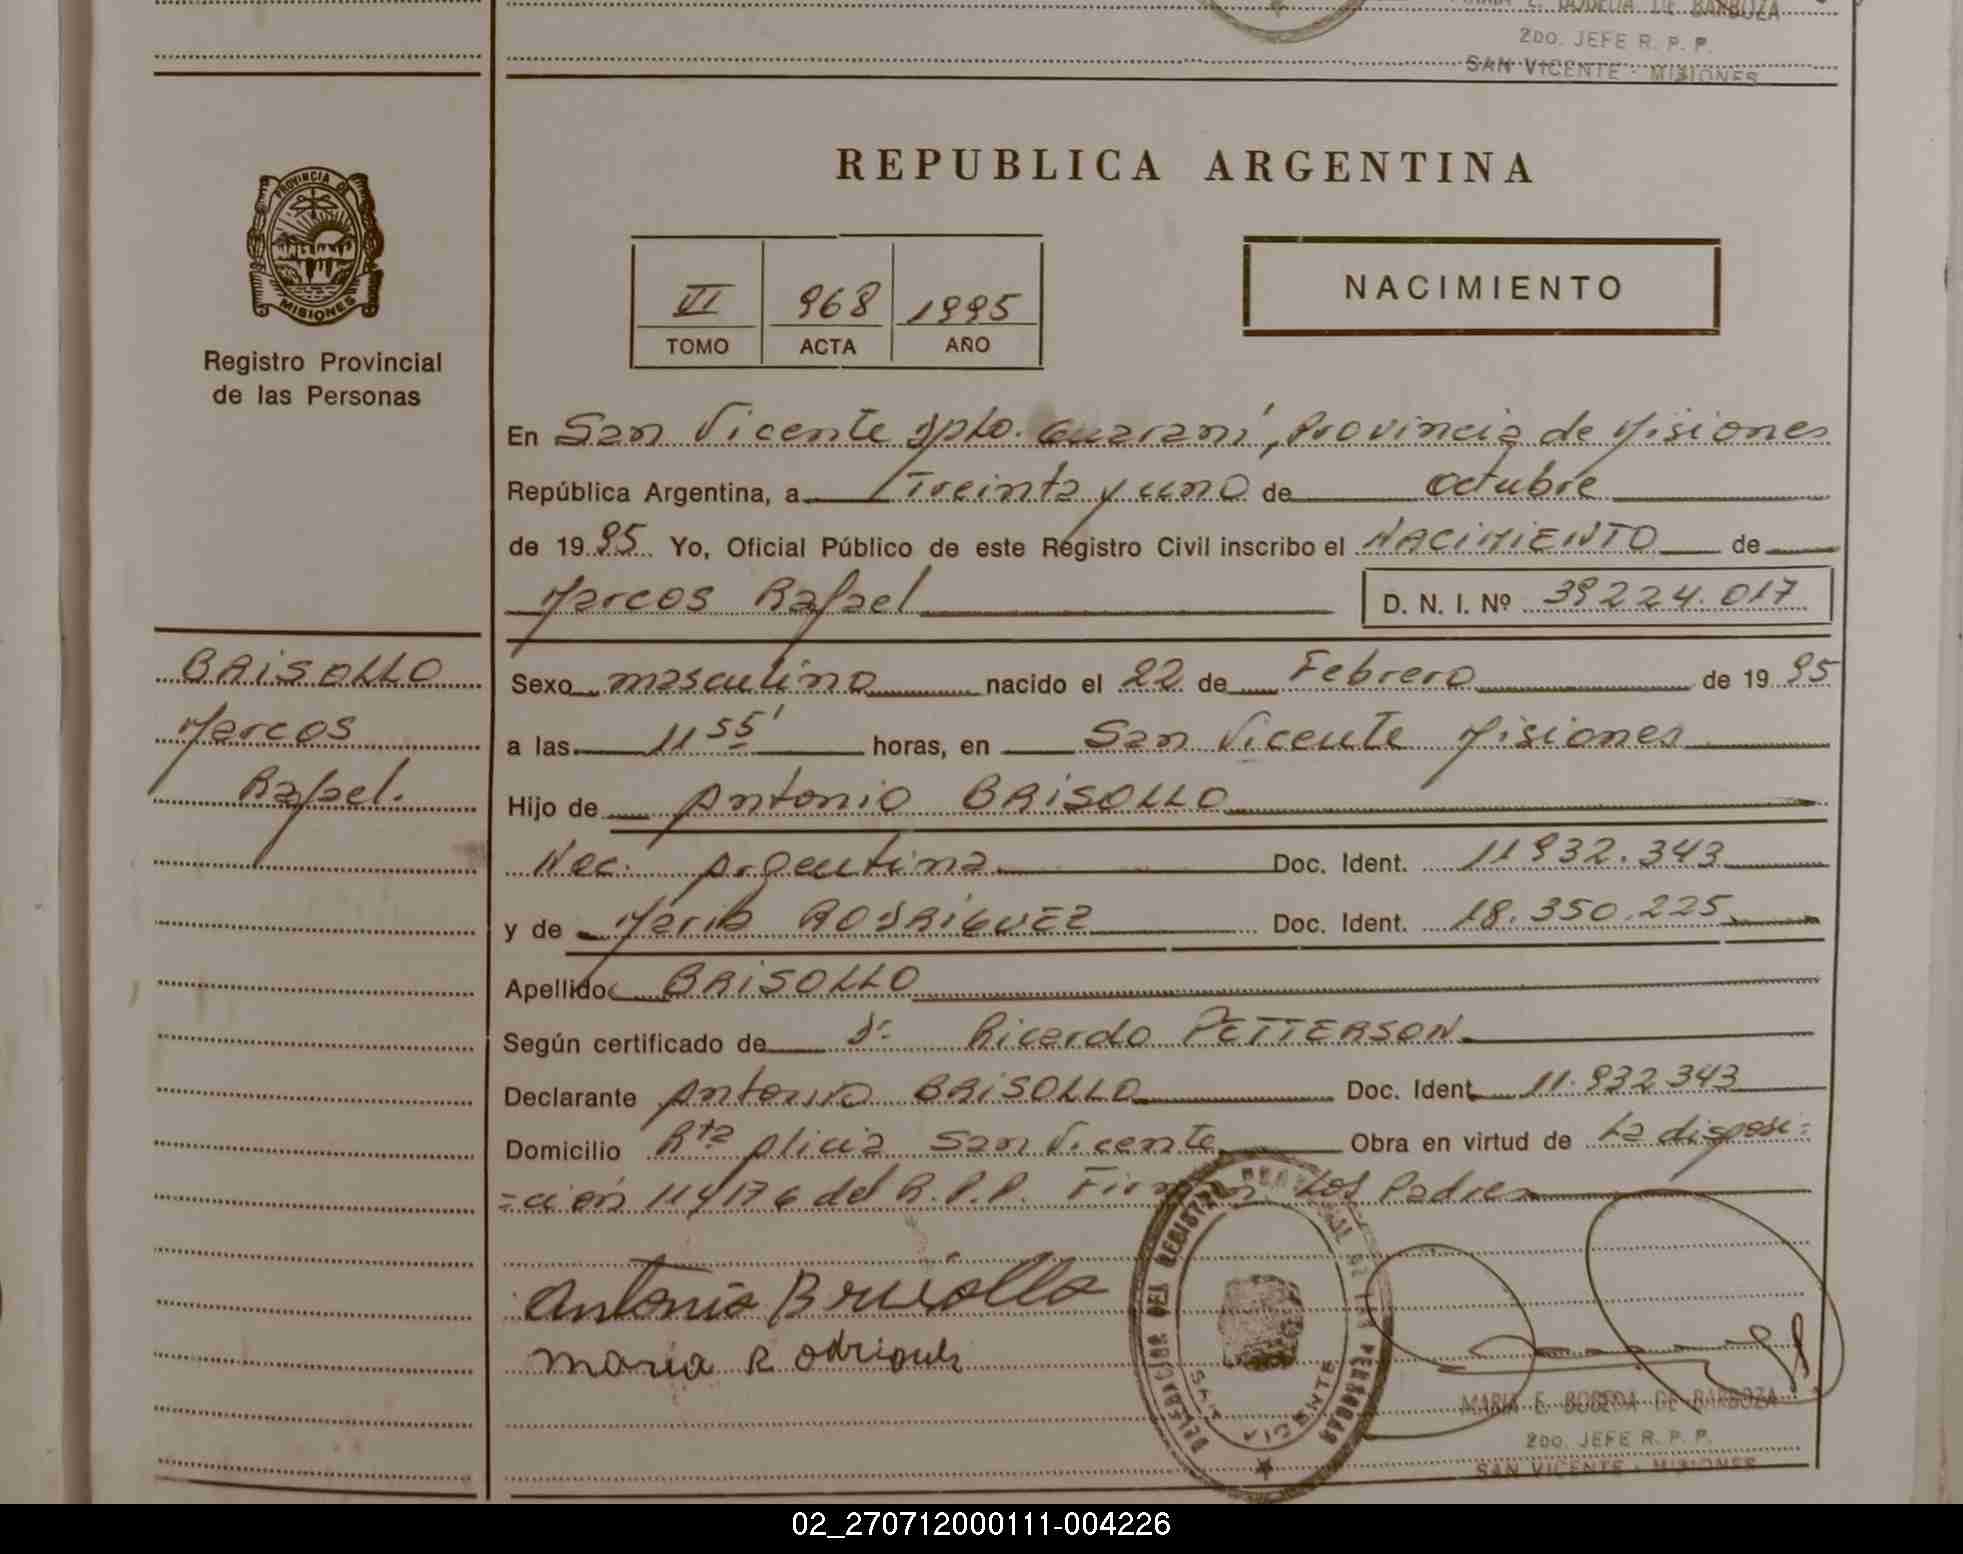 MARIA E. BOBEDA DE BARBOZA
2DO. JEFE R. P. P.
SAN VICENTE - MISIONES
REPUBLICA ARGENTINA
PROVINCIA DE
MISIONES
VI 968 1995
TOMO ACTA AÑO
NACIMIENTO
Registro Provincial
de las Personas
En San Vicente Dpto. Guaraní, Provincia de Misiones
República Argentina, a Treinta y uno de octubre
de 1995 Yo, Oficial Público de este Registro Civil inscribo el NACIMIENTO de
Marcos Rafael D. N. I. Nº 39224.017
BRISOLLO
Marcos
Rafael.
Sexo masculino nacido el 22 de Febrero de 1995
a las 11 55' horas, en San Vicente Misiones
Hijo de Antonio BRISOLLO
Nac. Argentina Doc. Ident. 11932.343
y de María RODRIGUEZ Doc. Ident. 18.350.225
Apellido BRISOLLO
Según certificado de Dr. Ricardo PETTERSON
Declarante Antonio BRISOLLO Doc. Ident. 11.932343
Domicilio Rta Alicia San Vicente Obra en virtud de La disposi=
=ción 114/76 del R.P.P. Firman Los Padres
Antonio
Maria
DELEGACION DEL REGISTRO PROVINCIAL DE LAS PERSONAS
SAN VICENTE
MARIA E. BOBEDA DE BARBOZA
2DO. JEFE R. P. P.
SAN VICENTE - MISIONES
02_270712000111-004226